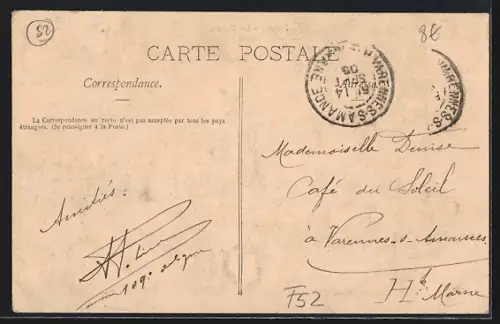 52
8€
CARTE POSTALE
VARENNES-S-AMANCE
14
SEPT
05
VARENNES-S-
Correspondance.
La Correspondance au recto n'est pas acceptée par tous les pays
étrangers. (Se renseigner à la Poste.)
Mademoiselle Denise
Café du Soleil
à Varennes-s-Amances
Hte Marne
Amitiés.
109e de ligne
F52